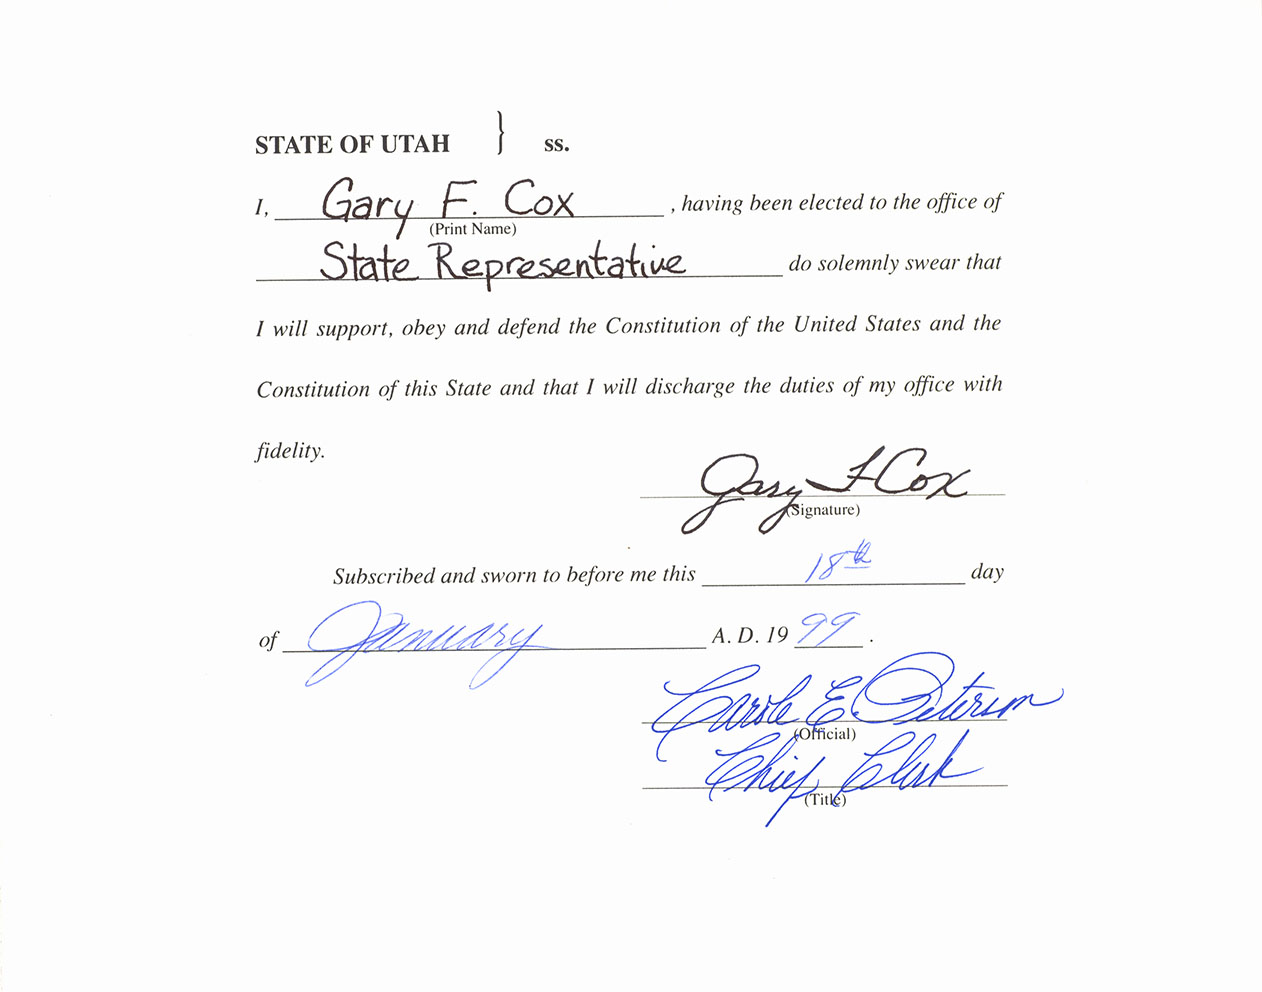 STATE OF UTAH } ss.
I, Gary F. Cox , having been elected to the office of
(Print Name)
State Representative do solemnly swear that
I will support, obey and defend the Constitution of the United States and the
Constitution of this State and that I will discharge the duties of my office with
fidelity.
Gary F Cox
(Signature)
Subscribed and sworn to before me this 18th day
of January A. D. 19 99 .
Carole E Peterson
(Official)
Chief Clerk
(Title)